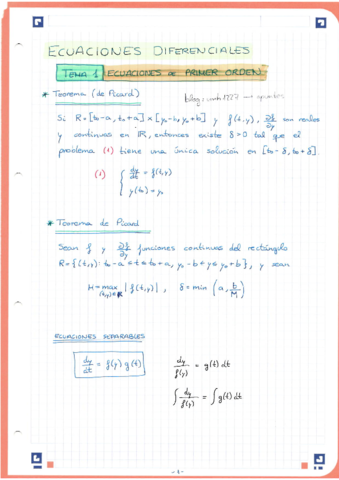 ECUACIONES DIFERENCIALES
TEMA 1 ECUACIONES de PRIMER ORDEN
* Teorema (de Picard)
Si R=[t₀-a, t₀+a]×[y₀-b, y₀+b] y f(t,y), ∂f/∂y son reales
y continuas en ℝ, entonces existe δ>0 tal que el
problema (1) tiene una única solución en [t₀-δ, t₀+δ].
(1) { dy/dt = f(t,y)
y(t₀) = y₀
* Teorema de Picard
Sean f y ∂f/∂y funciones continuas del rectángulo
R={(t,y): t₀-a ≤ t ≤ t₀+a, y₀-b ≤ y ≤ y₀+b}, y sean
M = max (t,y)∈R |f(t,y)|, δ = min (a, b/M)
ECUACIONES SEPARABLES
dy/dt = f(y) g(t)
dy/f(y) = g(t) dt
∫ dy/f(y) = ∫ g(t) dt
-1-